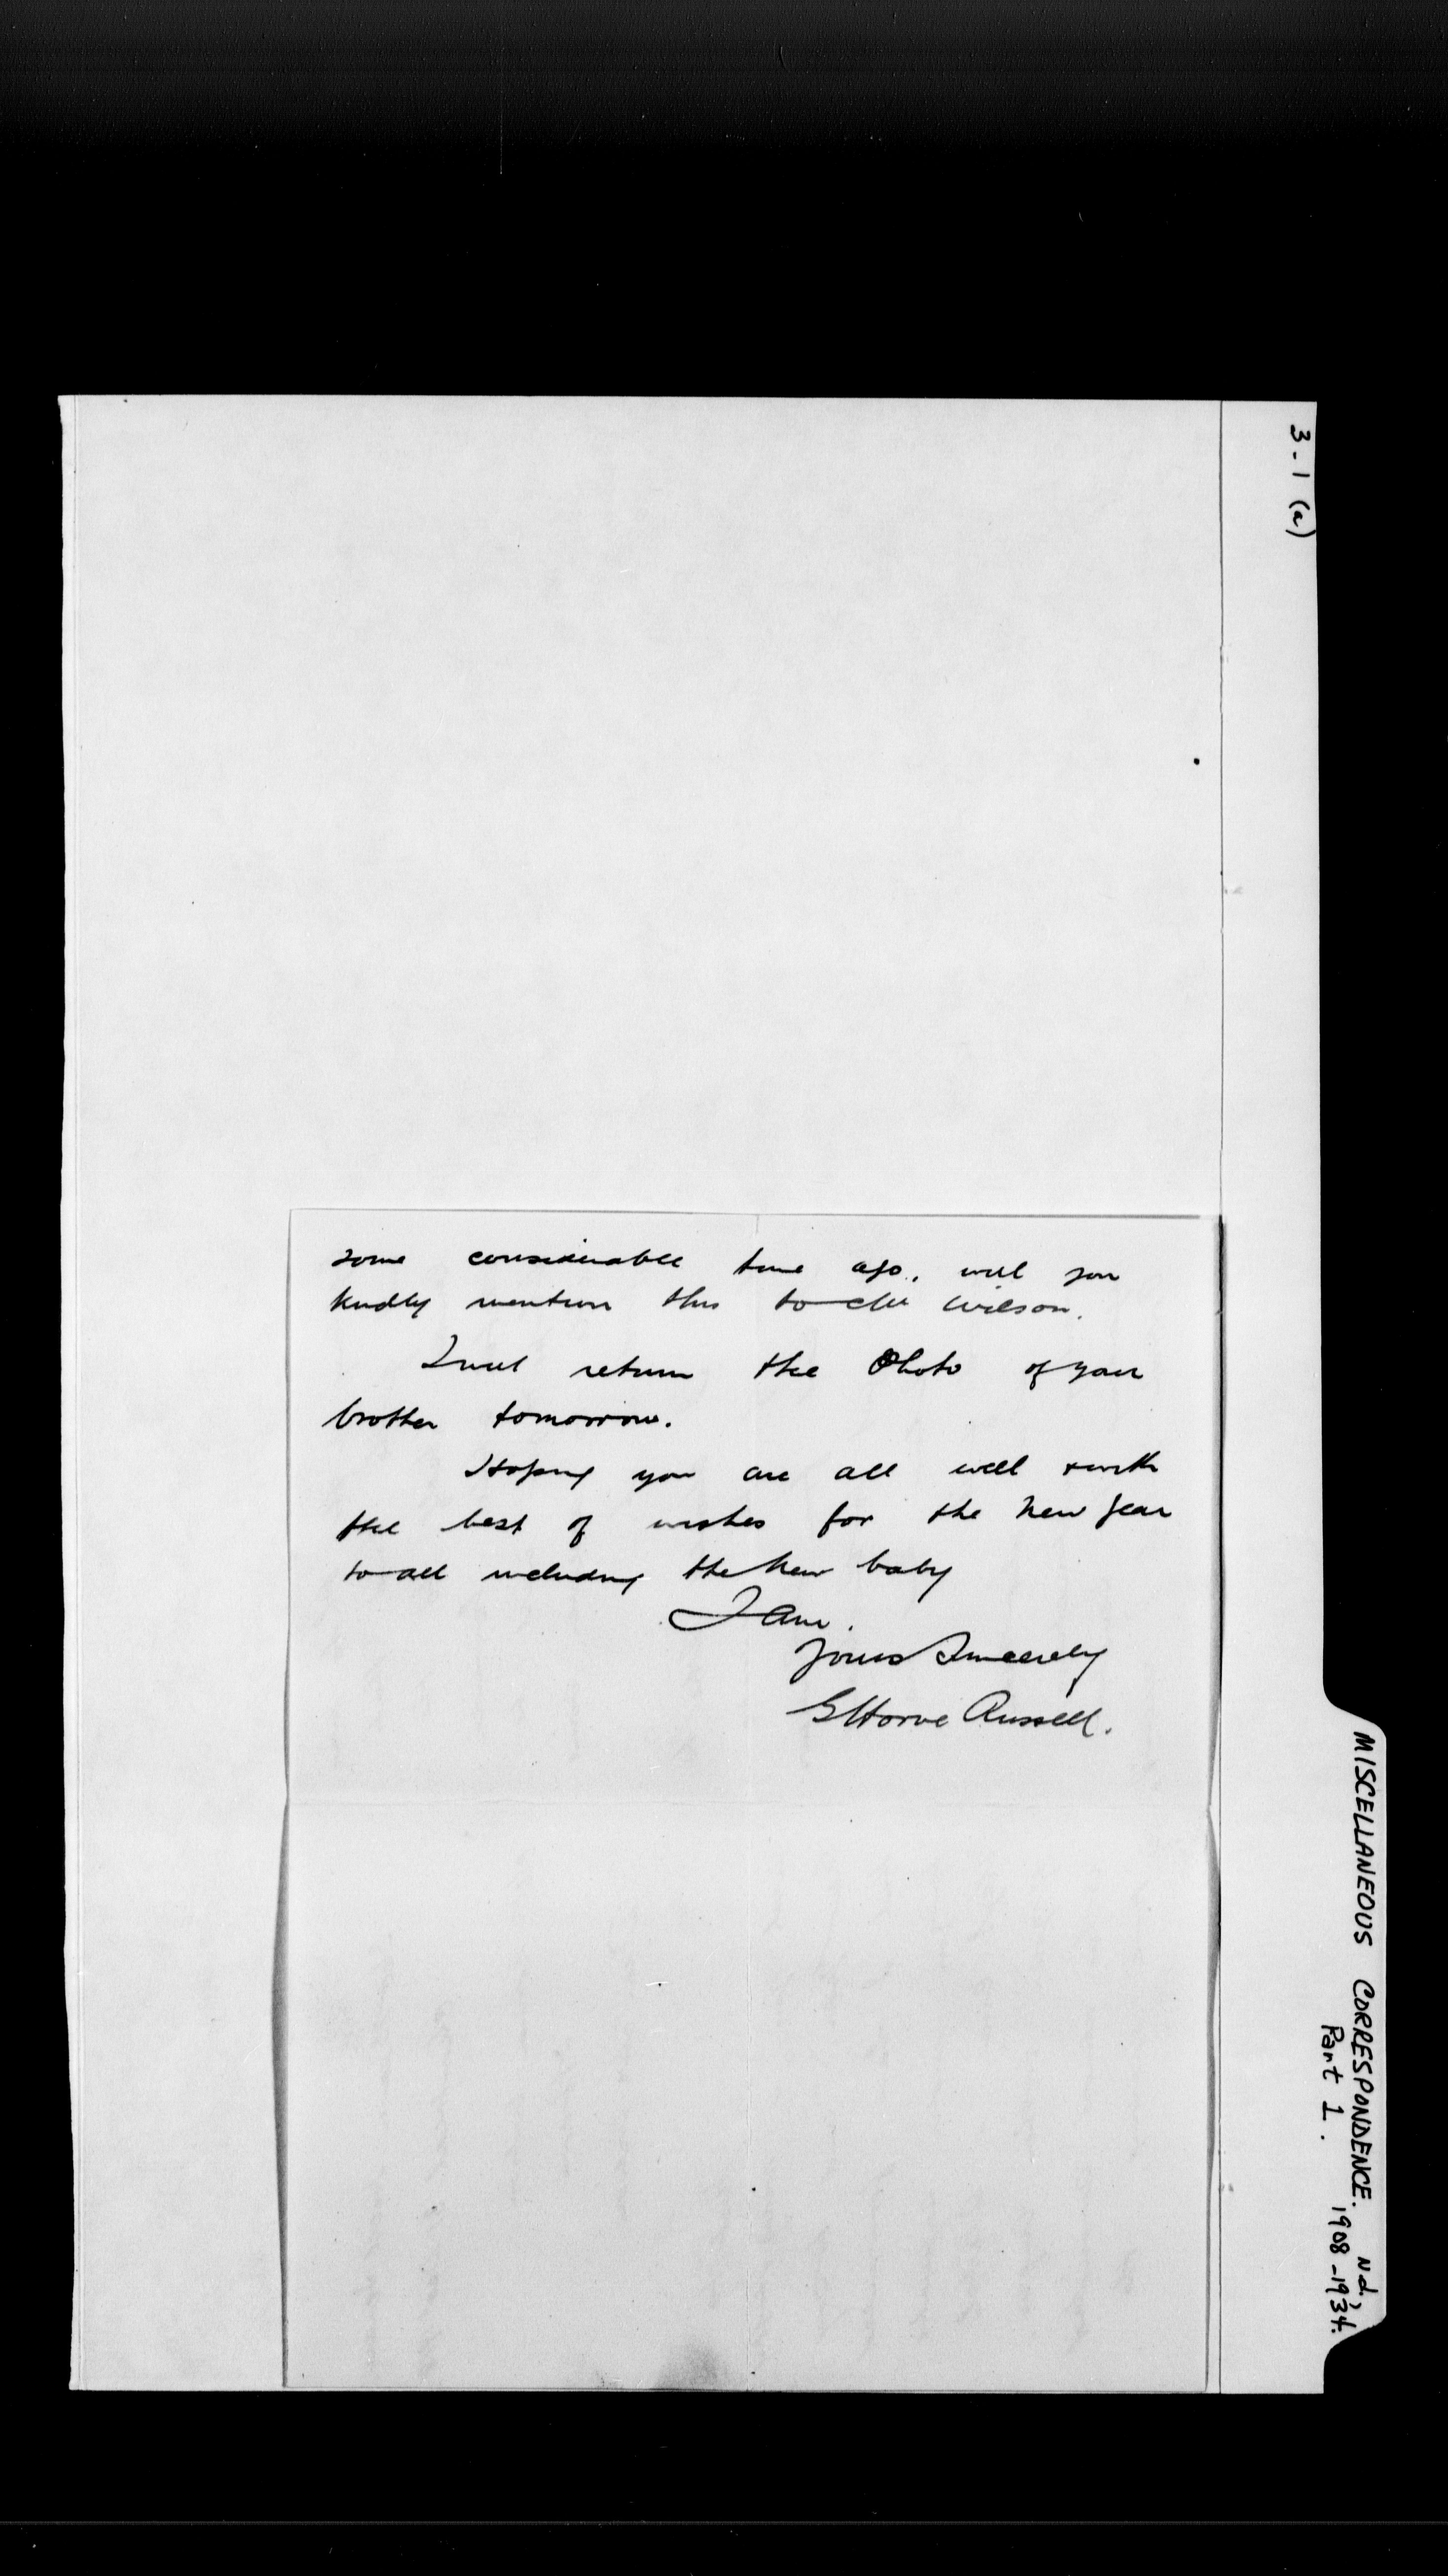 3-1 (a)
some considerable time ago. will you
kindly mention this to Mr Wilson.
I will return the Photo of your
brother tomorrow.
Hoping you are all well & with
the best of wishes for the New Year
to all including the New baby
I am.
Yours Sincerely
G Horne Russell.
MISCELLANEOUS CORRESPONDENCE. N.d.,
Part 1. 1908-1934.